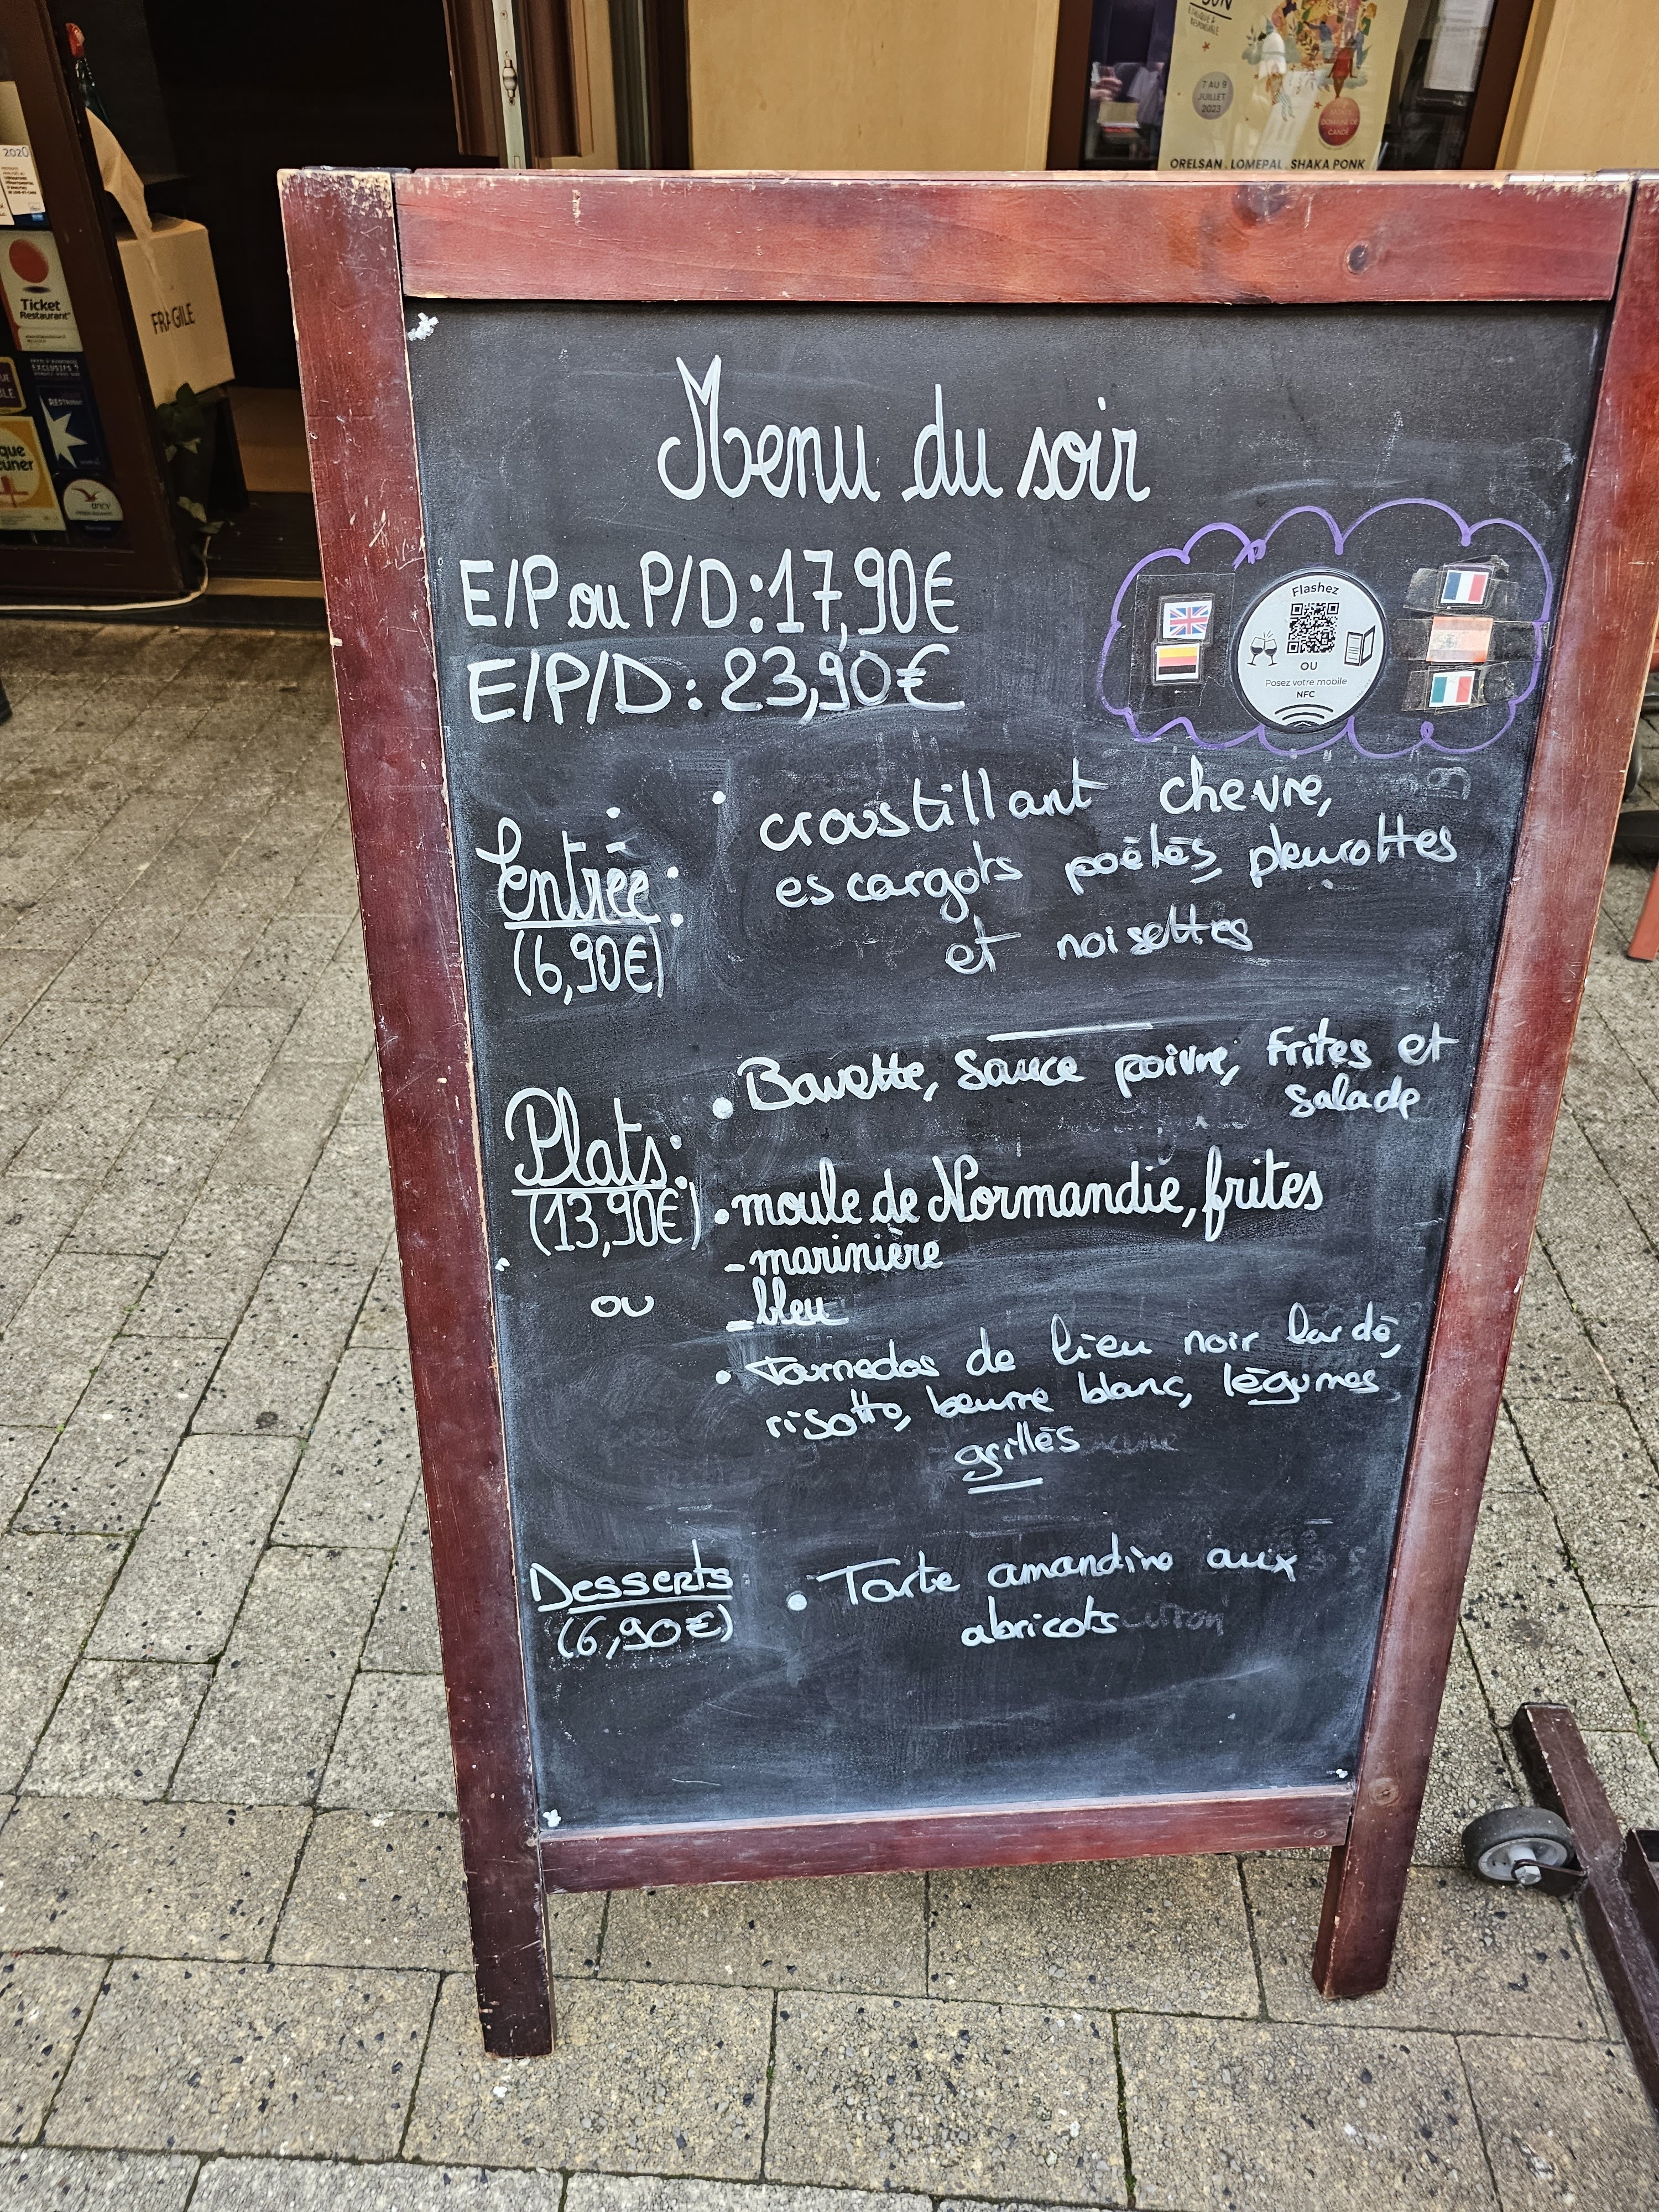 SON
7 AU 9
JUILLET
2023
DOMAINE DE
CANDÉ
ORELSAN . LOMEPAL . SHAKA PONK
2020
Ticket
Restaurant
FRAGILE
EXCLUSIFS
RESTAURANT
ancv
Menu du soir
E/P ou P/D : 17,90€
E/P/D : 23,90€
Flashez
OU
Posez votre mobile
NFC
Entrée :
(6,90€)
• croustillant chevre,
escargots poêlés, pleurottes
et noisettes
Plats :
(13,90€)
• Bavette, sauce poivre, frites et
salade
• moule de Normandie, frites
- marinière
- bleu
ou
• Tournedos de lieu noir lardé,
risotto, beurre blanc, légumes
grillés
Desserts
(6,90€)
• Tarte amandine aux
abricots